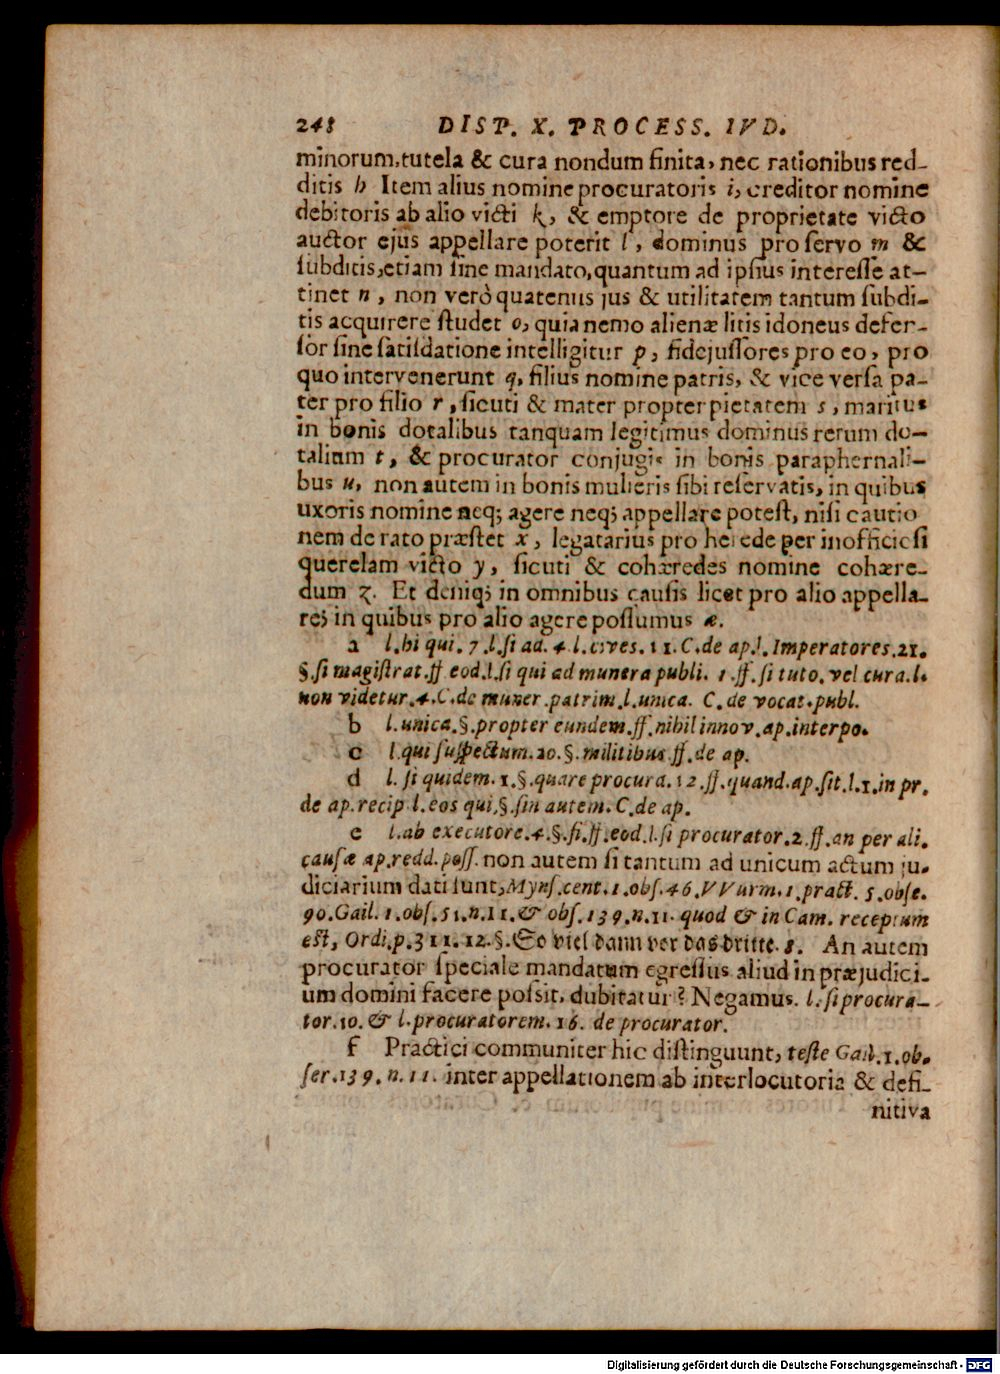 248 DISP. X. PROCESS. IVD.
minorum, tutela & cura nondum finita, nec rationibus red-
ditis h Item alius nomine procuratoris i, creditor nomine
debitoris ab alio victi k, & emptore de proprietate victo
auctor ejus appellare poterit l, dominus pro servo m &
ſubditis, etiam ſine mandato, quantum ad ipſius intereſſe at-
tinet n, non verò quatenus jus & utilitatem tantum ſubdi-
tis acquirere ſtudet o, quia nemo alienæ litis idoneus defen-
ſor ſine ſatiſdatione intelligitur p, fidejuſſores pro eo, pro
quo intervenerunt q, filius nomine patris, & vice verſa pa-
ter pro filio r, ſicuti & mater propter pietatem s, maritus
in bonis dotalibus tanquam legitimus dominus rerum do-
talium t, & procurator conjugis in bonis paraphernali-
bus u, non autem in bonis mulieris ſibi reſervatis, in quibus
uxoris nomine neq; agere neq; appellare poteſt, niſi cautio
nem de rato præſtet x, legatarius pro herede per inofficioſi
querelam victo y, ſicuti & cohæredes nomine cohære-
dum z. Et deniq; in omnibus cauſis licet pro alio appella-
re; in quibus pro alio agere poſſumus æ.
a l. hi qui. 7. l. ſi ad. 4. l. cives. 11. C. de ap. l. Imperatores. 21.
§. ſi magiſtrat. ff eod. l. ſi qui ad munera publi. 1. ff. ſi tuto. vel cura. l.
non videtur. 4. C. de muner. patrim. l. unica. C. de vocat. publ.
b l. unica. §. propter eundem. ff. nihil innov. ap. interpo.
c l qui ſuſpectum. 20. §. militibus ff. de ap.
d l. ſi quidem. 1. §. quare procura. 12. ff. quand. ap. ſit. l. 1. in pr.
de ap. recip l. eos qui. §. ſin autem. C. de ap.
e l. ab executore. 4. §. ſi. ff. eod. l. ſi procurator. 2. ff. an per ali.
cauſæ ap. redd. poſſ. non autem ſi tantum ad unicum actum ju-
diciarium dati ſunt, Mynſ. cent. 1. obſ. 46. VVurm. 1. pract. 5. obſe.
90. Gail. 1. obſ. 51. n. 11. & obſ. 139. n. 11. quod & in Cam. receptum
eſt, Ordi. p. 3 11. 12. §. So viel dann ver das dritte. s. An autem
procurator ſpeciale mandatum egreſſus aliud in præjudici-
um domini facere poſsit, dubitatur? Negamus. l. ſi procura-
tor. 10. & l. procuratorem. 16. de procurator.
f Practici communiter hic diſtinguunt, teſte Gail. 1. ob.
ſer. 139. n. 11. inter appellationem ab interlocutoria & defi-
nitiva
Digitalisierung gefördert durch die Deutsche Forschungsgemeinschaft - DFG